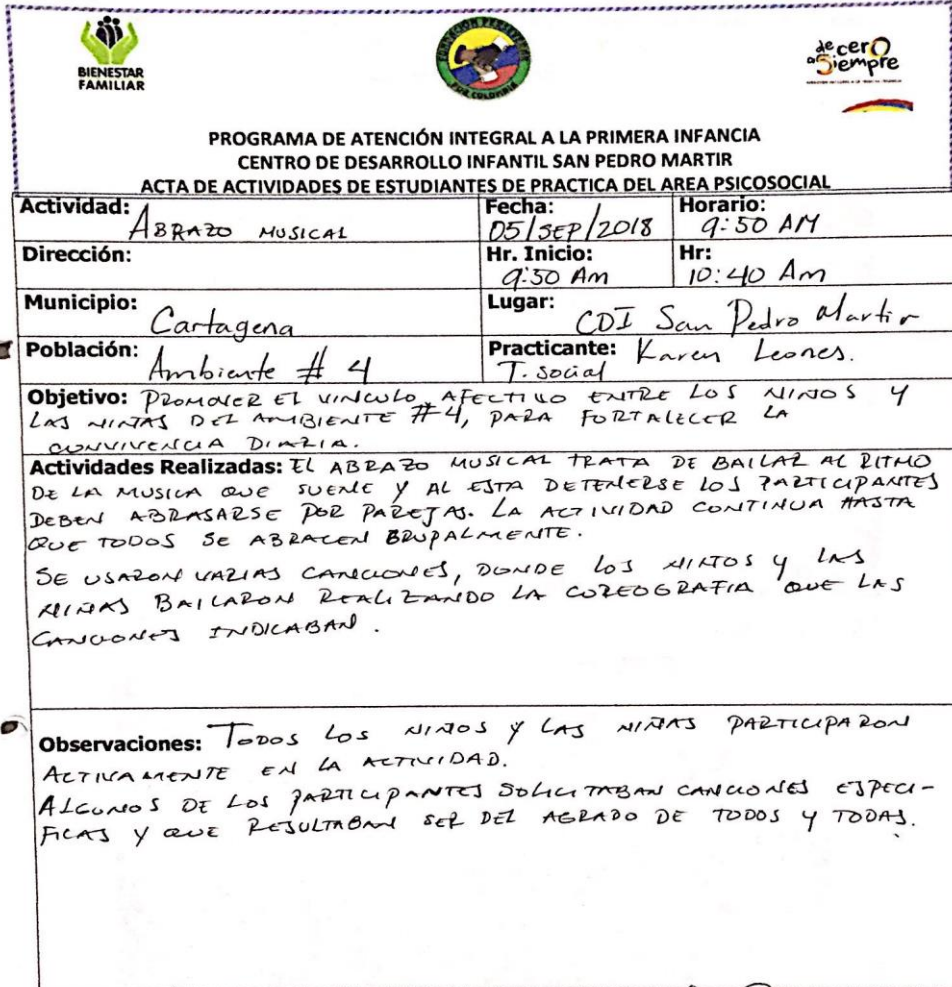 BIENESTAR
FAMILIAR
POR COLOMBIA
de cer0
a Siempre
PROGRAMA DE ATENCIÓN INTEGRAL A LA PRIMERA INFANCIA
CENTRO DE DESARROLLO INFANTIL SAN PEDRO MARTIR
ACTA DE ACTIVIDADES DE ESTUDIANTES DE PRACTICA DEL AREA PSICOSOCIAL
Actividad: ABRAZO MUSICAL
Fecha: 05/SEP/2018
Horario: 9:50 AM
Dirección:
Hr. Inicio: 9:50 Am
Hr: 10:40 Am
Municipio: Cartagena
Lugar: CDI San Pedro Martir
Población: Ambiente # 4
Practicante: Karen Leones.
T. social
Objetivo: PROMOVER ET VINCULO AFECTIVO ENTRE LOS NIÑOS Y
LAS NIÑAS DEL AMBIENTE #4, PARA FORTALECER LA
CONVIVENCIA DIARIA.
Actividades Realizadas: EL ABRAZO MUSICAL TRATA DE BAILAR AL RITMO
DE LA MUSICA QUE SUENE Y AL ESTA DETENERSE LOS PARTICIPANTES
DEBEN ABRASARSE POR PAREJAS. LA ACTIVIDAD CONTINUA HASTA
QUE TODOS SE ABRACEN GRUPALMENTE.
SE USARON VARIAS CANCIONES, DONDE LOS NIÑOS Y LAS
NIÑAS BAILARON REALIZANDO LA COREOGRAFIA QUE LAS
CANCIONES INDICABAN.
Observaciones: TODOS LOS NIÑOS Y LAS NIÑAS PARTICIPARON
ACTIVAMENTE EN LA ACTIVIDAD.
ALGUNOS DE LOS PARTICIPANTES SOLICITABAN CANCIONES ESPECI-
FICAS Y QUE RESULTABAN SER DEL AGRADO DE TODOS Y TODAS.